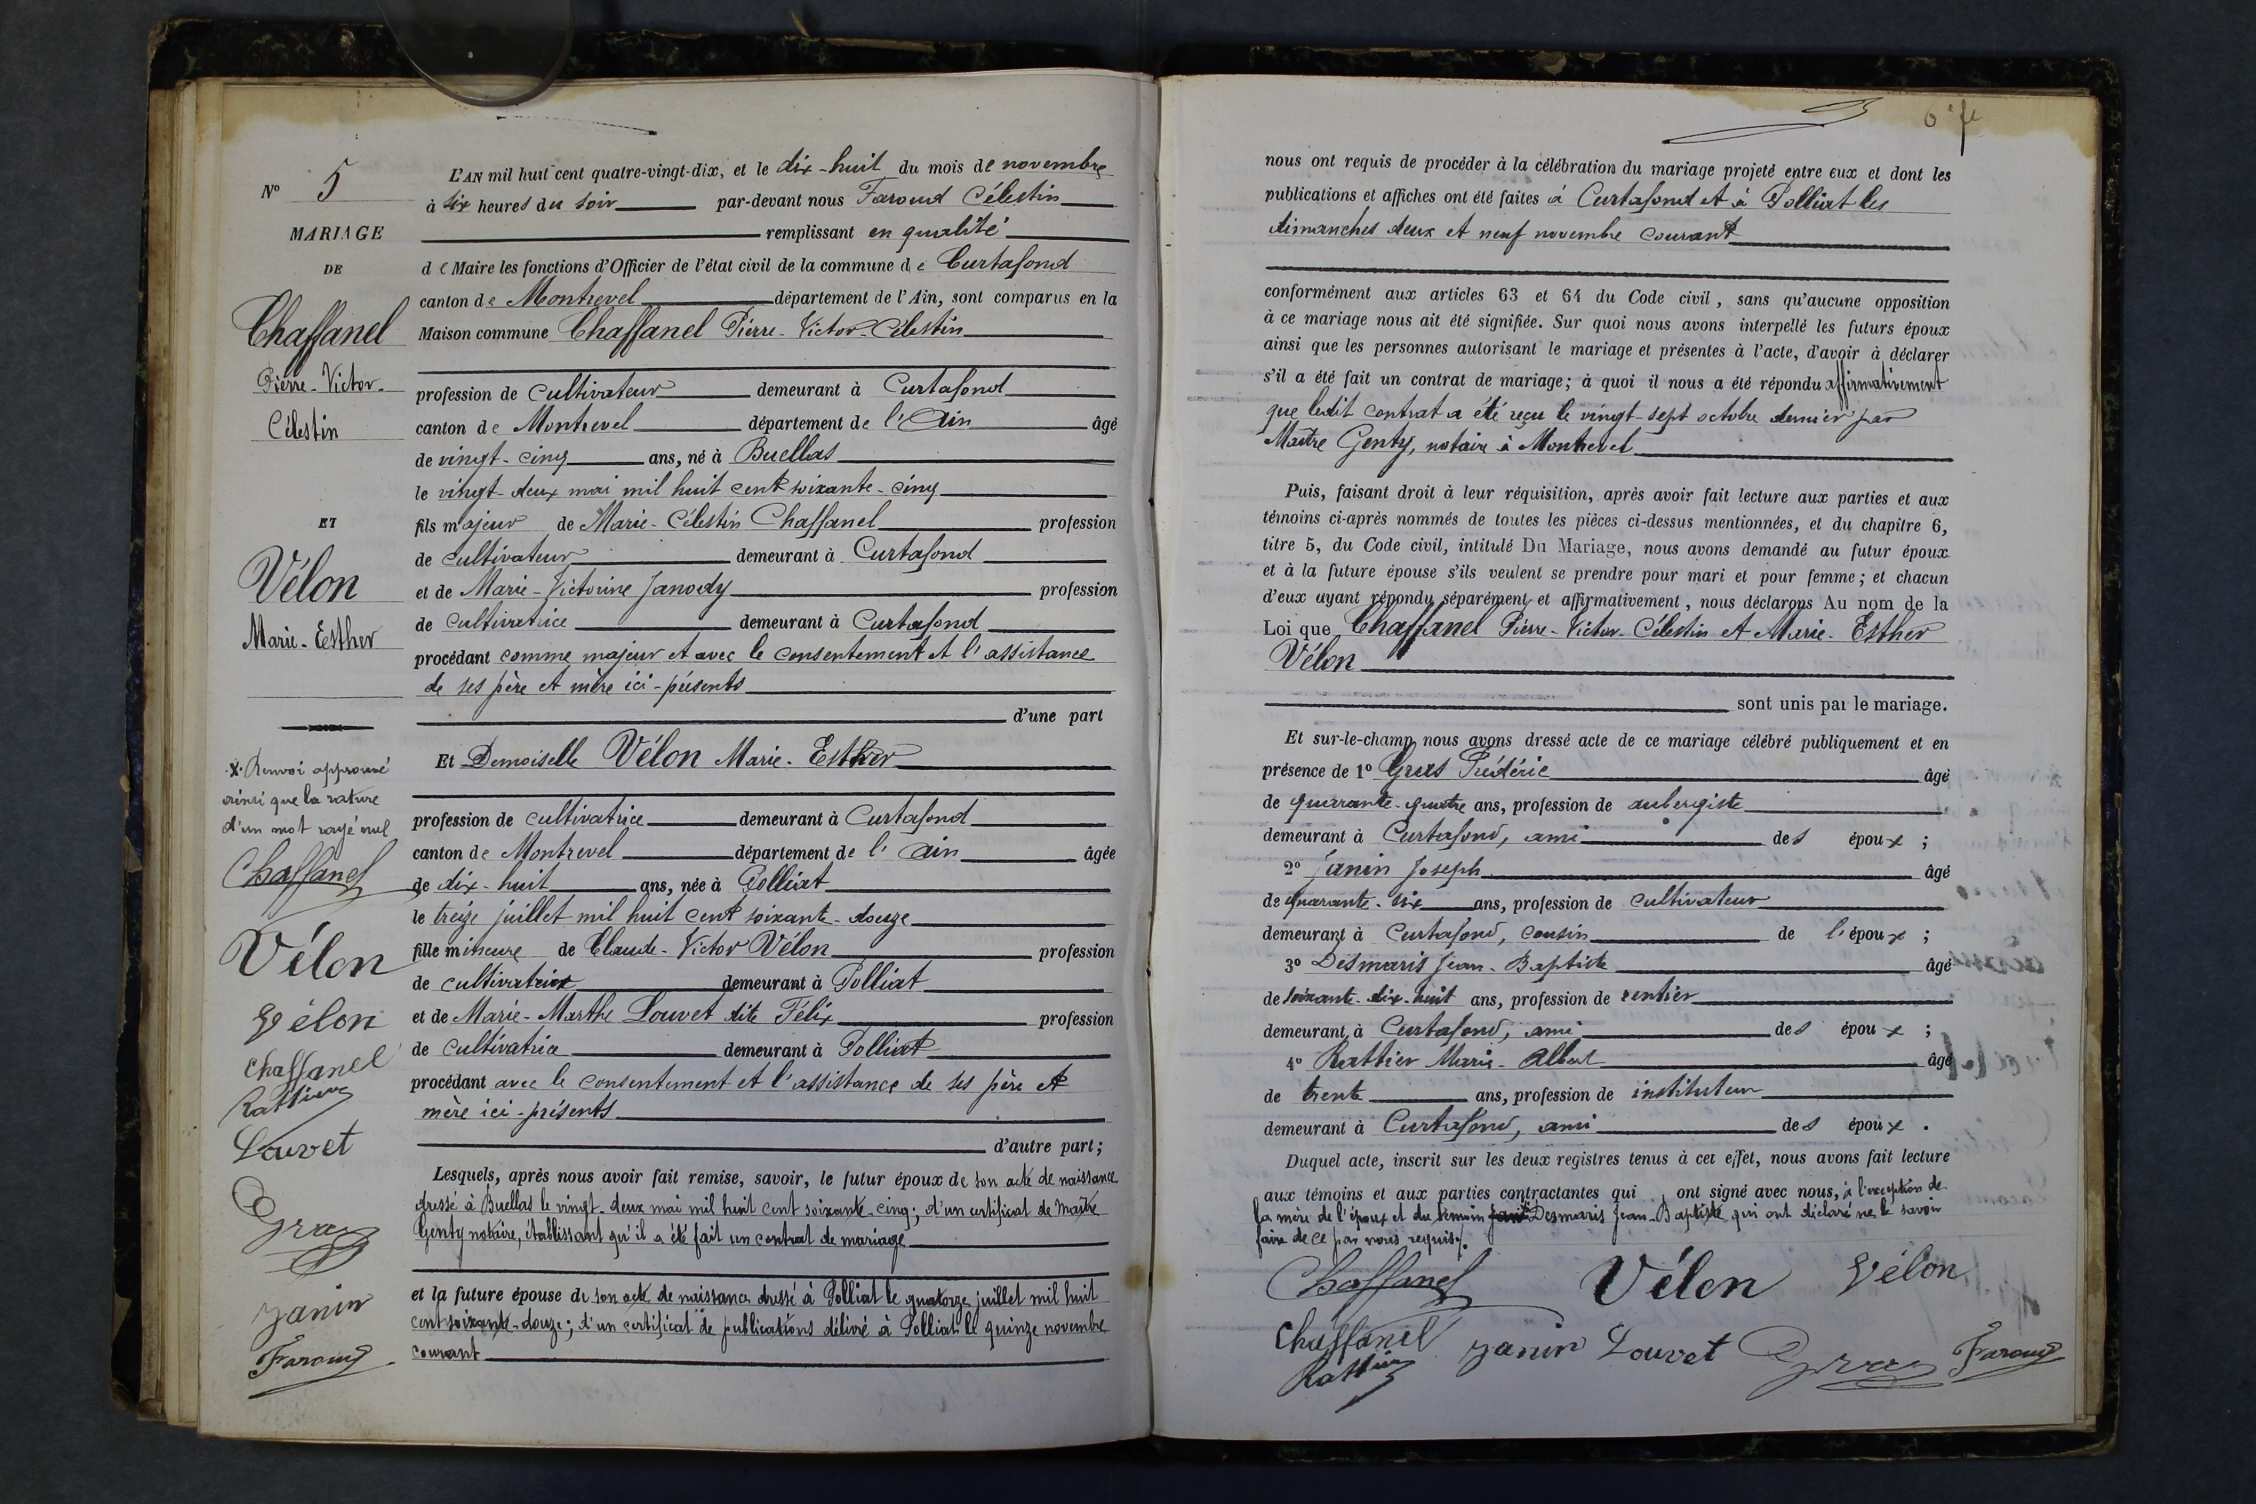 N° 5
MARIAGE
DE
Chaffanel
Pierre-Victor-
Célestin
ET
Vélon
Marie-Esther
X Renvoi approuvé
ainsi que la rature
d'un mot rayé nul
Chaffanel
Vélon
Vélon
Chaffanel
Rattier
Louvet
Gras
Janin
Faroud
L'AN mil huit cent quatre-vingt-dix, et le dix-huit du mois de novembre
à six heures du soir par-devant nous Faroud Célestin
remplissant en qualité
de Maire les fonctions d'Officier de l'état civil de la commune de Curtafond
canton de Montrevel département de l'Ain, sont comparus en la
Maison commune Chaffanel Pierre-Victor-Célestin
profession de cultivateur demeurant à Curtafond
canton de Montrevel département de l'Ain âgé
de vingt-cinq ans, né à Buellas
le vingt-deux mai mil huit cent soixante-cinq
fils majeur de Marie-Célestin Chaffanel profession
de cultivateur demeurant à Curtafond
et de Marie-Victorine Janody profession
de cultivatrice demeurant à Curtafond
procédant comme majeur et avec le consentement et l'assistance
de ses père et mère ici-présents
d'une part
Et Demoiselle Vélon Marie-Esther
profession de cultivatrice demeurant à Curtafond
canton de Montrevel département de l'Ain âgée
de dix-huit ans, née à Polliat
le treize juillet mil huit cent soixante-douze
fille mineure de Claude-Victor Vélon profession
de demeurant à Polliat
et de Marie-Marthe Louvet dite Félix profession
de cultivatrice demeurant à Polliat
procédant avec le consentement et l'assistance de ses père et
mère ici-présents
d'autre part;
Lesquels, après nous avoir fait remise, savoir, le futur époux de son acte de naissance
dressé à Buellas le vingt-deux mai mil huit cent soixante-cinq; d'un certificat de Maître
Genty notaire, établissant qu'il a été fait un contrat de mariage
et la future épouse de son acte de naissance dressé à Polliat le quatorze juillet mil huit
cent soixante-douze; d'un certificat de publications délivré à Polliat le quinze novembre
courant
6
nous ont requis de procéder à la célébration du mariage projeté entre eux et dont les
publications et affiches ont été faites à Curtafond et à Polliat les
dimanches deux et neuf novembre courant
conformément aux articles 63 et 64 du Code civil, sans qu'aucune opposition
à ce mariage nous ait été signifiée. Sur quoi nous avons interpellé les futurs époux
ainsi que les personnes autorisant le mariage et présentes à l'acte, d'avoir à déclarer
s'il a été fait un contrat de mariage; à quoi il nous a été répondu affirmativement
que ledit contrat a été reçu le vingt-sept octobre dernier par
Maître Genty, notaire à Montrevel
Puis, faisant droit à leur réquisition, après avoir fait lecture aux parties et aux
témoins ci-après nommés de toutes les pièces ci-dessus mentionnées, et du chapitre 6,
titre 5, du Code civil, intitulé Du Mariage, nous avons demandé au futur époux
et à la future épouse s'ils veulent se prendre pour mari et pour femme; et chacun
d'eux ayant répondu séparément et affirmativement, nous déclarons Au nom de la
Loi que Chaffanel Pierre-Victor-Célestin et Marie-Esther
Vélon
sont unis par le mariage.
Et sur-le-champ nous avons dressé acte de ce mariage célébré publiquement et en
présence de 1° Gras Frédéric âgé
de quarante-quatre ans, profession de aubergiste
demeurant à Curtafond, ami des époux ;
2° Janin Joseph âgé
de quarante-six ans, profession de cultivateur
demeurant à Curtafond, cousin de l'époux ;
3° Desmaris Jean-Baptiste âgé
de soixante-dix-huit ans, profession de rentier
demeurant à Curtafond, ami des époux ;
4° Rattier Marie-Albert âgé
de trente ans, profession de instituteur
demeurant à Curtafond, ami des époux .
Duquel acte, inscrit sur les deux registres tenus à cet effet, nous avons fait lecture
aux témoins et aux parties contractantes qui ont signé avec nous, à l'exception de
la mère de l'époux et du témoin Desmaris Jean-Baptiste qui ont déclaré ne le savoir
faire de ce par nous requis.
Chaffanel Vélon Vélon
Chaffanel Janin Louvet Gras Faroud
Rattier